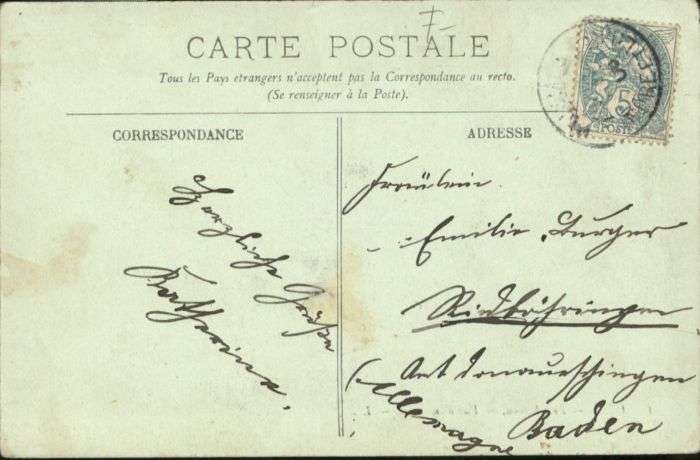 CARTE POSTALE
Tous les Pays etrangers n'acceptent pas la Correspondance au recto.
(Se renseigner à la Poste).
CORRESPONDANCE
Herzliche Grüße
Katharina.
ADRESSE
Fräulein
Emilie
Riedböhringen
Amt Donaueschingen
Baden
(Allemagne
5
POSTE